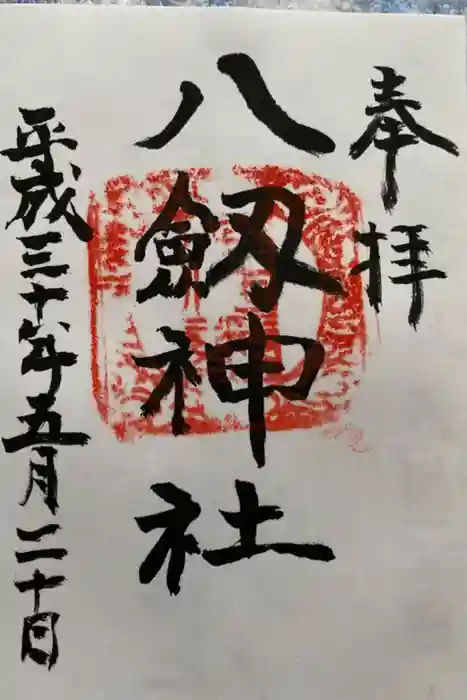 奉拝
八劔神社
平成三十年五月二十日